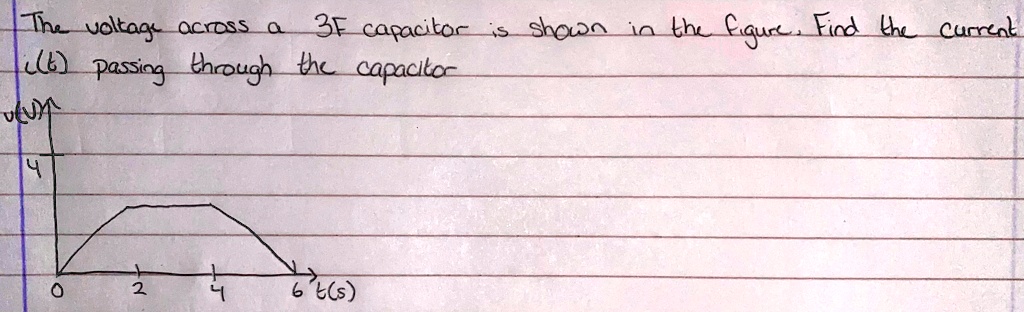 The voltage across a 3F capacitor is shown in the figure. Find the current
i(t) passing through the capacitor
v(V)
4
0 2 4 6 t(s)